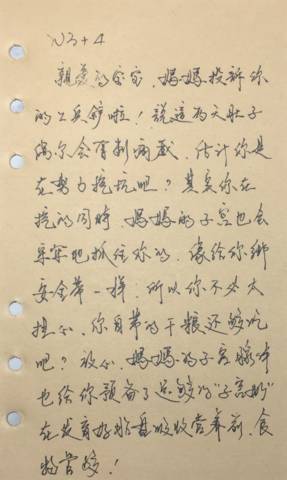 W3+4
亲爱的宝宝,妈妈投诉你
的工兵铲啦!说这两天肚子
偶尔会有刺痛感,估计你是
在努力挖坑吧?其实你在
挖的同时,妈妈的子宫也会
牢牢地抓住你的,像给你绑
安全带一样,所以你不必太
担心,你自带的干粮还够吃
吧?放心,妈妈的子宫腺体
也给你预备了足够的"子宫奶"
在发育好胎盘吸收营养前,食
物管够!